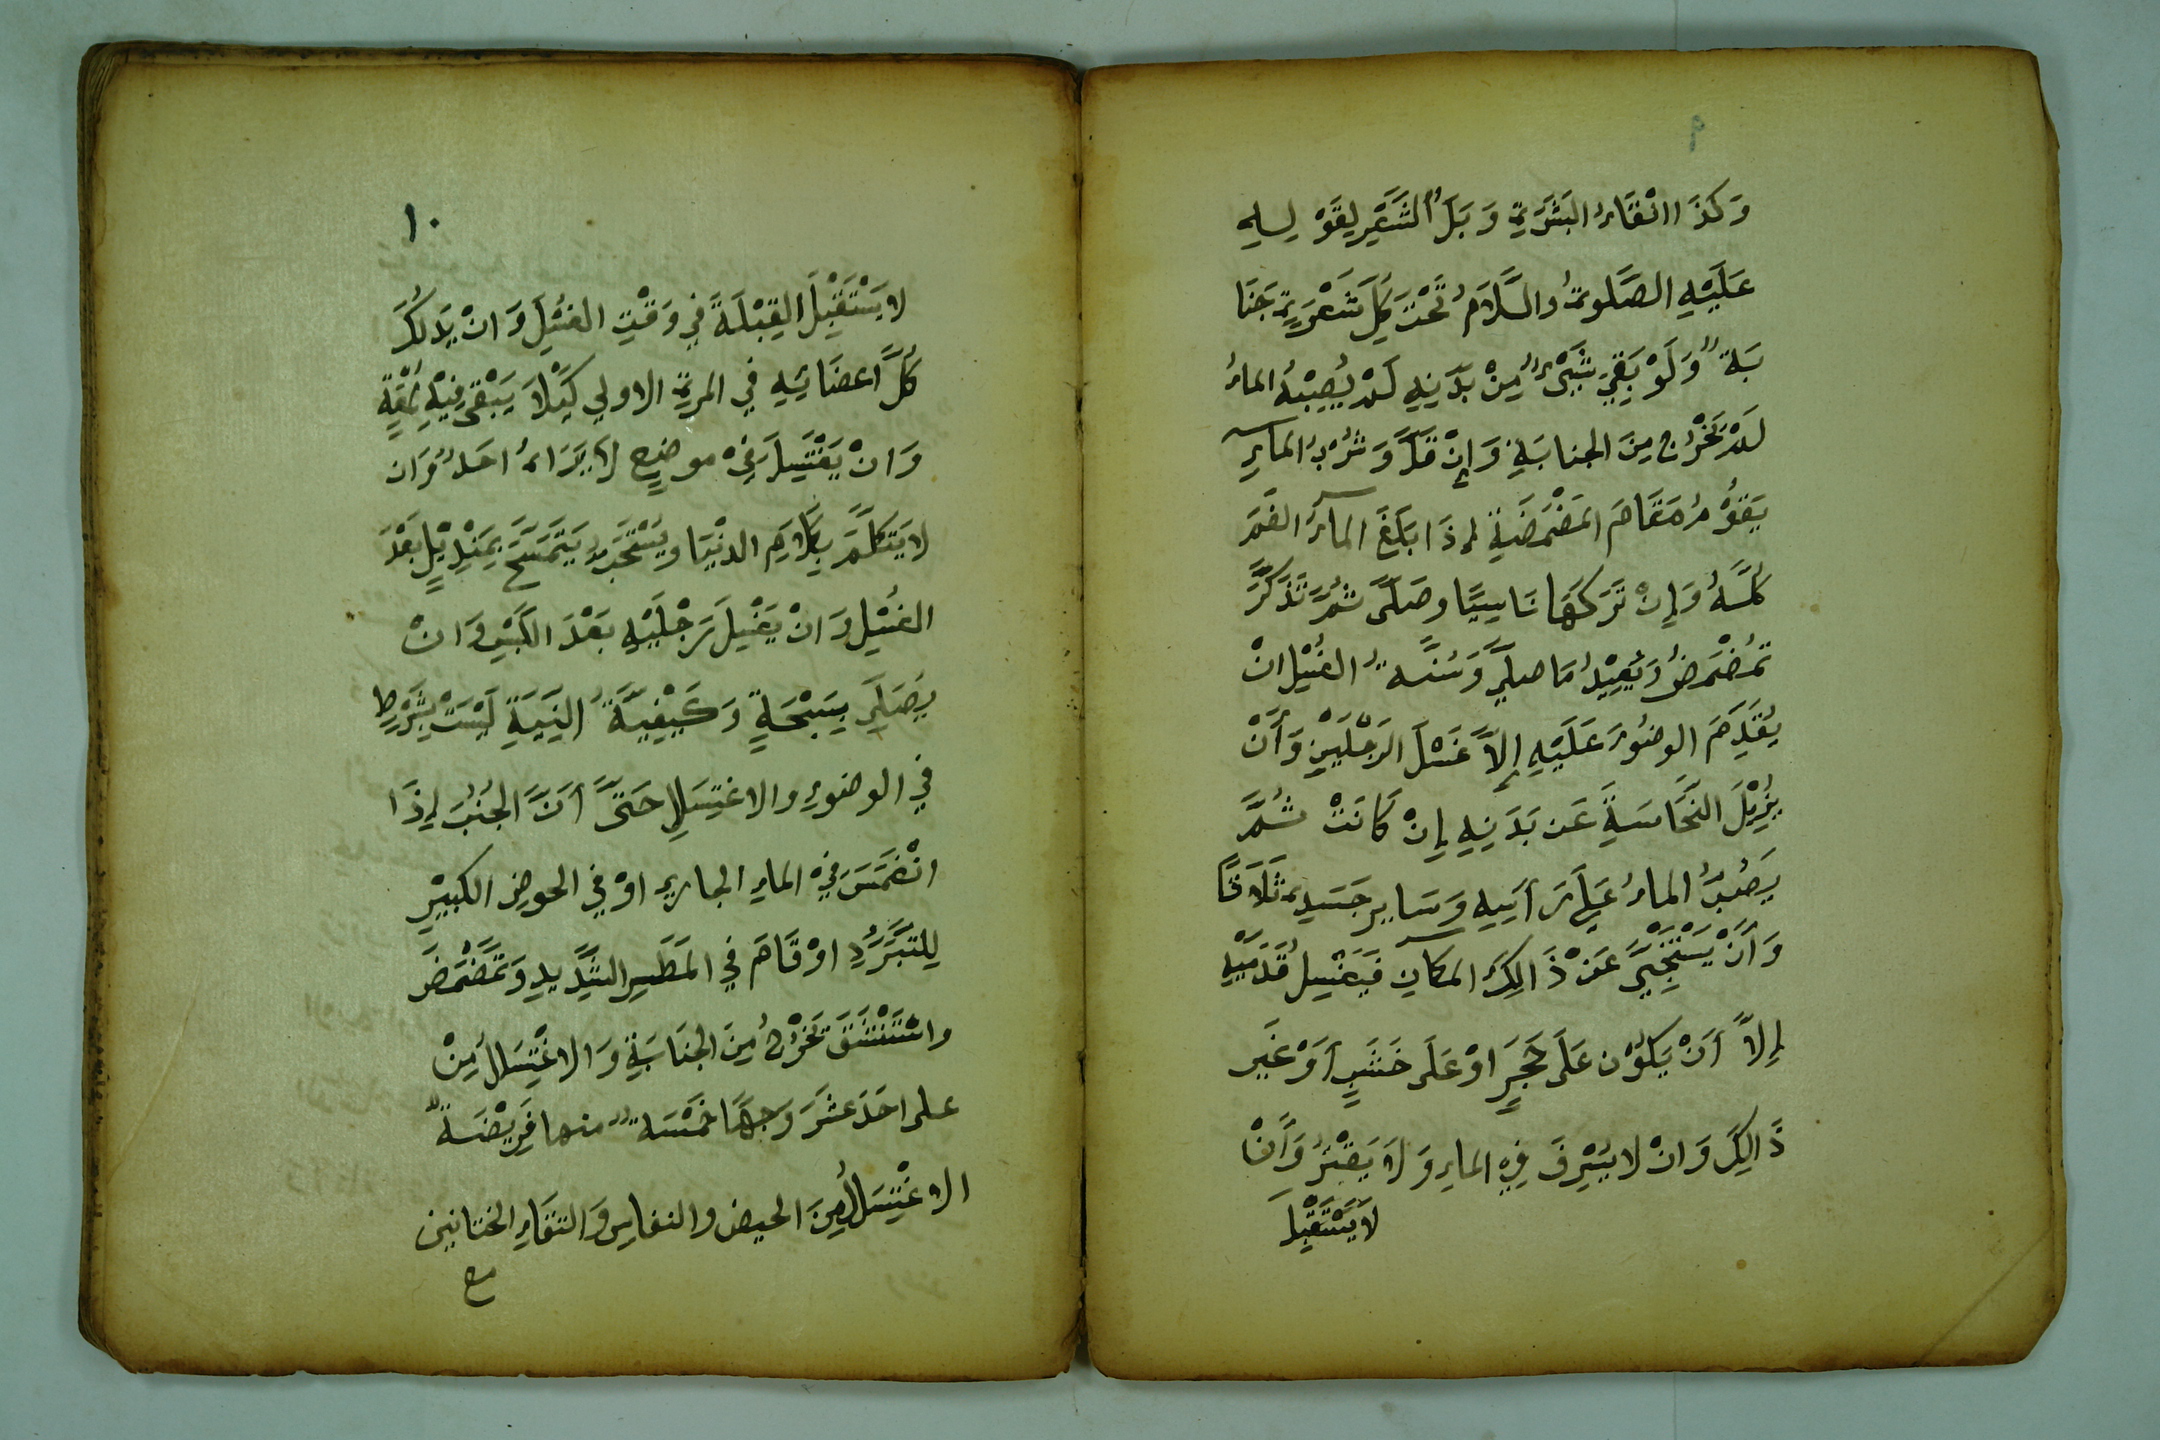 ٩
وَكَذَا انْقَاءُ البَشَرَةِ وَبَلُّ الشَّعْرِ لِقَوْلِهِ
عَلَيْهِ الصَّلٰوةُ والسَّلَامُ تَحْتَ كُلِّ شَعْرَةٍ جَنَا
بَةٌ وَلَوْ بَقِيَ شَىْءٌ مِنْ بَدَنِهِ لَمْ يُصِبْهُ الماءُ
لَمْ يَخْرُج مِنَ الجنابَةِ وَإِنْ قَلَّ وَشُرْبُ المآءِ
يَقوُمُ مَقَامَ المَضْمَضَةِ إِذَا بَلَغَ المآءُ الفَمَ
كُلَّهُ وَإِنْ تَرَكَهَا نَاسِيًا وصَلَّى ثُمَّ تَذَكَّرَ
تَمَضْمَضَ وَيُعِيْدُ مَا صلَّي وَسُنَّةُ الغُسْلِ انْ
يُقَدِّمَ الوضُوءَ عَلَيْهِ إِلاَّ غَسْلَ الرِّجْلَيْنِ وَأَنْ
يُزِيْلَ النَّجَاسَةَ عَن بَدَنِهِ إِنْ كَانَتْ ثُمَّ
يَصُبُّ الماءُ عَلَي رَأسِهِ وَسَايِرِ جَسَدِهِ ثَلَاثًا
وَأَنْ يَسْتَنْجِيَ عَنْ ذَالِكَ المكانِ فَيَغْسِلُ قَدَمَيْهِ
إِلاَّ أَنْ يَكوُنَ عَلَى حَجَرٍ اوْ عَلَى خَشَبٍ أَوْ غَيْرِ
ذَالِكَ وَانْ لا يُسْرِفَ فِي الماءِ وَلَا يَقْتِرُ وَأَنْ
لَا يَسْتَقْبِلَ
١٠
لا يَسْتَقْبِلَ القِبْلَةَ فِي وَقْتِ الغُسْلِ وَانْ يَدْلُكَ
كُلَّ اعضَائِهِ فِي المرةِ الاولي كَيْلَا يَبْقَى فِيْهِ لُمْعَةٌ
وَانْ يَغْتَسِلَ فِىْ موضعٍ لَا يَرَاهُ احَدٌ وَان
لا يَتَكَلَّمَ بِكَلَامِ الدنْيَا ويُسْتَحَبُّ يَتَمَسَّحَ بِمَنْدِيْلٍ بَعْدَ
الغُسْلِ وَانْ يَغْسِلَ رِجْلَيْهِ بَعْدَ اللُّبْسِ وَانْ
يُصَلِّيَ بِسَبْحَةٍ وَكَيْفِيَّةُ النِّيَّةِ لَيْسَتْ بِشَرْطٍ
فِي الوضوءِ والاغتِسَلِ حَتَّى أَنَّ الجُنُبَ إِذَا
انْغَمَسَ فِيْ الماءِ الجاريِ اوْ فِي الحوضِ الكبيْرِ
لِلتَبَرُّدِ اوْ قَامَ فِي المَطَرِ الشَّدِيدِ وَتَمَضْمَضَ
واسْتَنْشَقَ يَخْرُجُ مِنَ الجَنَابَةِ وَالاغْتِسَالُ مِنْ
على احَدَ عشَرَ وَجهًا خَمْسَةٌ منها فَرِيْضَةٌ
الاغْتِسَلُ مِنَ الحيضِ والنفاسِ وَالتقَاءِ الختانين
مع